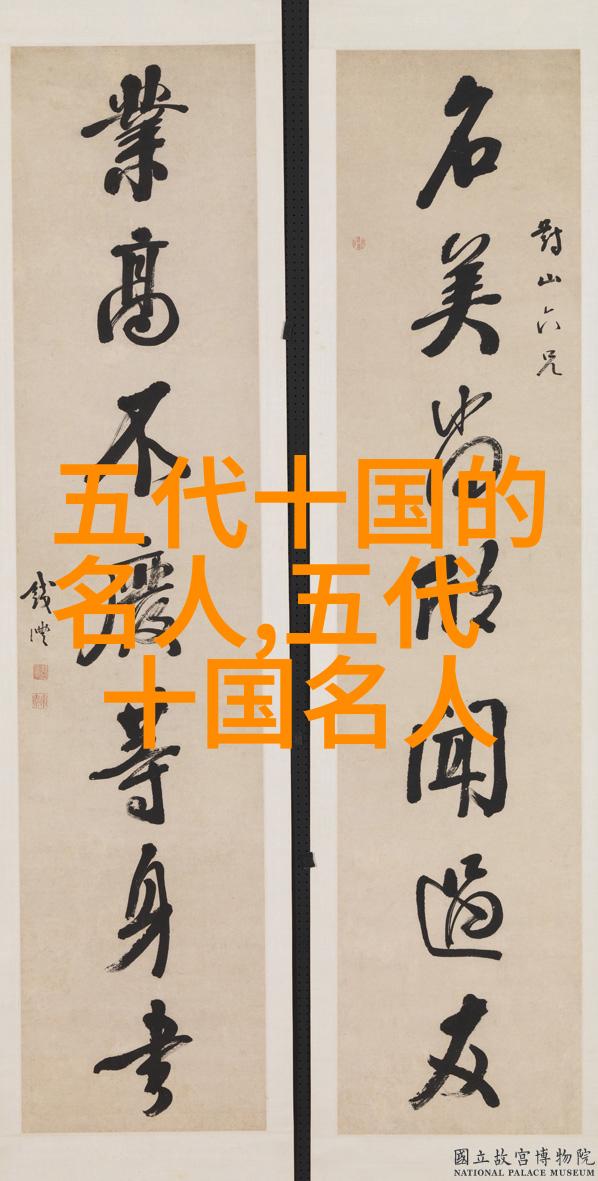 對山六兄
名美尚欣聞過友
業高不廢等身書
錢灃
五代十国的
名人,五代
十国名人
國立故宮博物院
NATIONAL PALACE MUSEUM